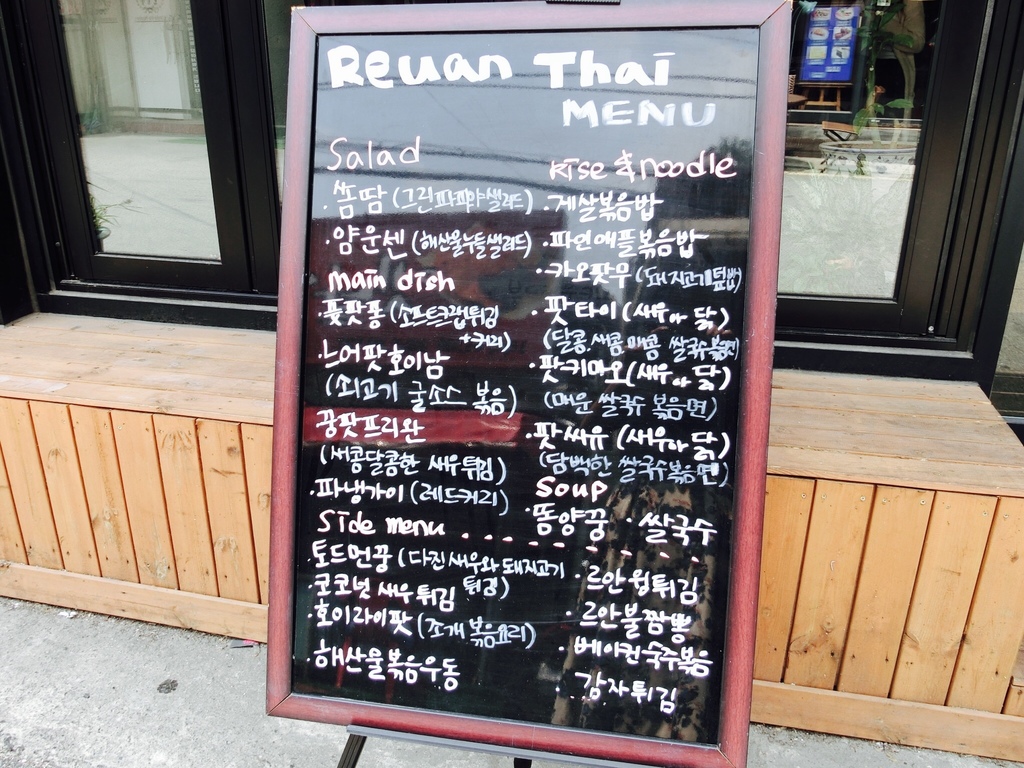 Reuan Thai
MENU
Salad
·쏨땀 (그린파파야샐러드)
·얌운센 (해산물누들샐러드)
main dish
·뿟팟퐁 (소프트크랩튀김
+커리)
느어팟호이남
(쇠고기 굴소스 볶음)
꿍팟프리완
(새콩달콤한 새우튀김)
·파냉가이 (레드커리)
Side menu
·토드먼꿍 (다진새우와 돼지고기
튀김)
·코코넛 새우튀김
·호이라이팟 (조개 볶음요리)
·해산물볶음우동
Rise & noodle
·게살볶음밥
·파인애플볶음밥
·카오팟무 (돼지고기덮밥)
·팟타이 (새우or닭)
(달콩,새콤매콤 쌀국수볶음면)
·팟키마오 (새우or닭)
(매운 쌀국수 볶음면)
·팟씨유 (새우or닭)
(담백한 쌀국수볶음면)
Soup
·똠양꿍 ·쌀국수
·르안윙튀김
·르안불짬뽕
·베이컨숙주볶음
·감자튀김